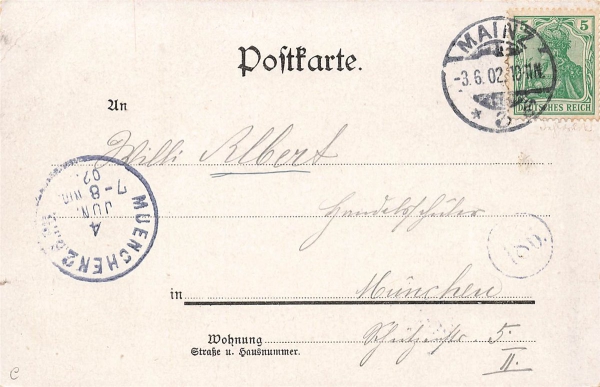 Postkarte.
MAINZ
-3.6.02. 10-11N.
* 3
5
DEUTSCHES REICH
An
Willi Albert
Handelsschüler
MUENCHEN 2
4 JUN.
7-8
02.
in München
Wohnung
Straße u. Hausnummer.
5
II.
C